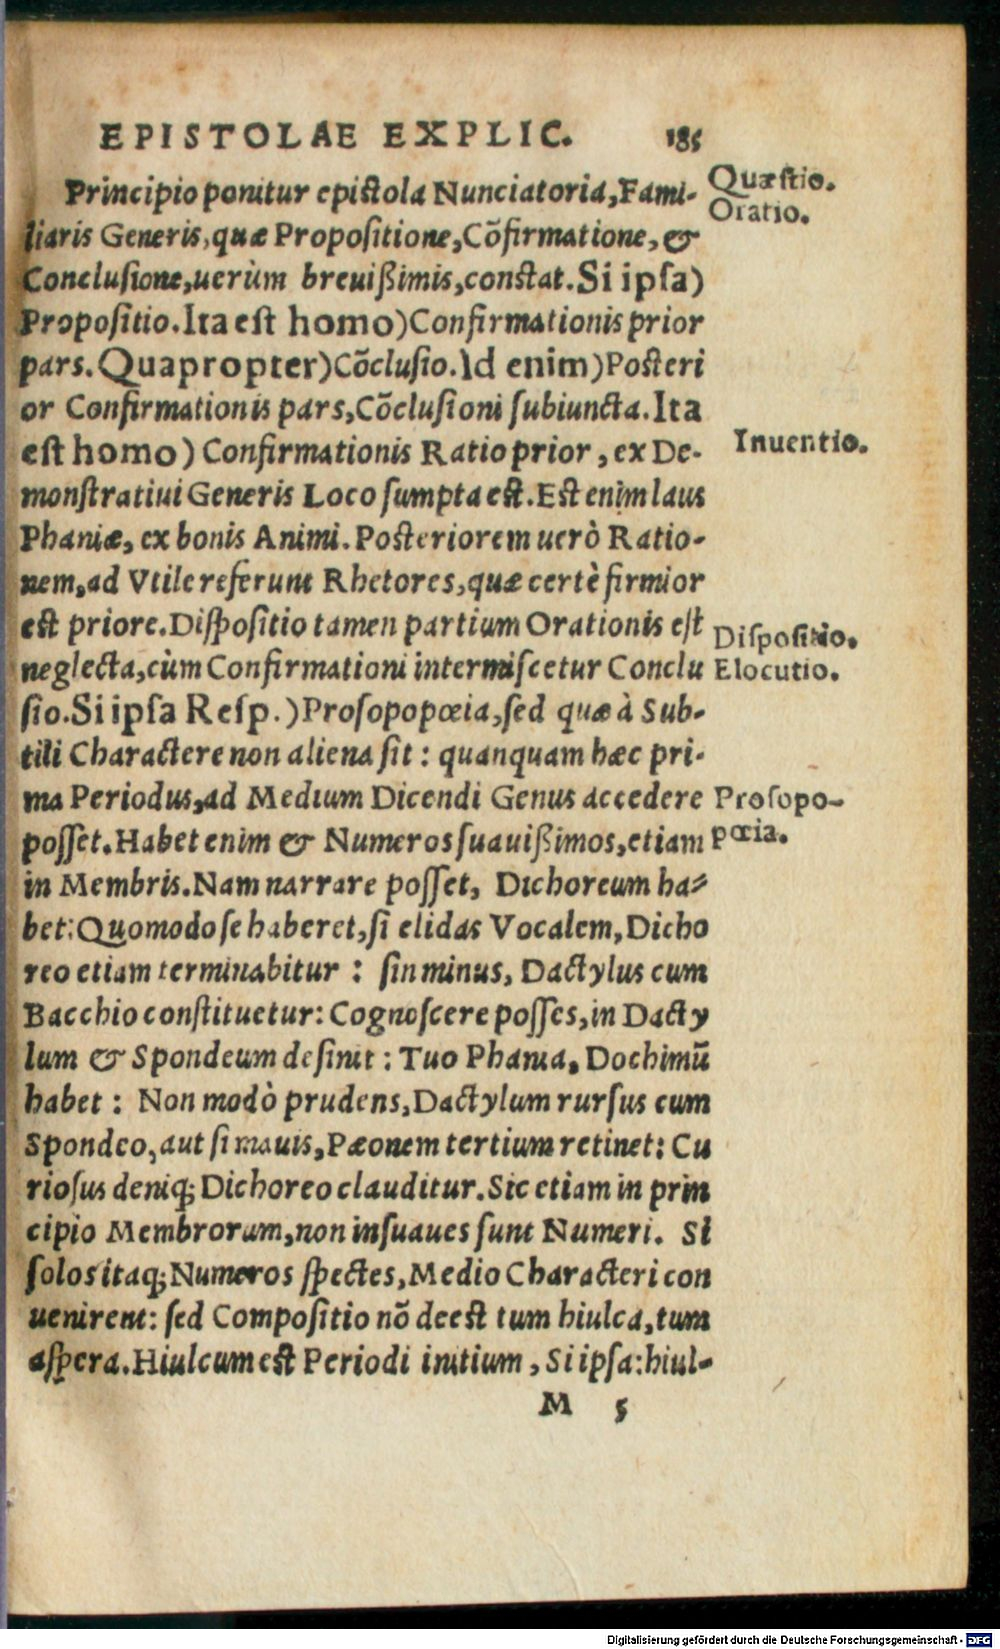 EPISTOLAE EXPLIC. 185
Principio ponitur epistola Nunciatoria, Fami-
Quæstio.
Oratio.
liaris Generis, quæ Propositione, Cõfirmatione, &
Conclusione, uerùm breuißimis, constat. Si ipsa)
Propositio. Ita est homo) Confirmationis prior
pars. Quapropter) Cõclusio. Id enim) Posteri
or Confirmationis pars, Cõclusioni subiuncta. Ita
est homo) Confirmationis Ratio prior, ex De-
Inuentio.
monstratiui Generis Loco sumpta est. Est enim laus
Phaniæ, ex bonis Animi. Posteriorem uerò Ratio-
nem, ad Vtile referunt Rhetores, quæ certè firmior
est priore. Dispositio tamen partium Orationis est
Dispositio.
neglecta, cùm Confirmationi intermiscetur Conclu
Elocutio.
sio. Si ipsa Resp.) Prosopopœia, sed quæ à Sub-
tili Charactere non aliena sit: quanquam hæc pri-
ma Periodus, ad Medium Dicendi Genus accedere
Prosopo-
pœia.
posset. Habet enim & Numeros suauißimos, etiam
in Membris. Nam narrare posset, Dichoreum ha-
bet: Quomodo se haberet, si elidas Vocalem, Dicho
reo etiam terminabitur: sin minus, Dactylus cum
Bacchio constituetur: Cognoscere posses, in Dacty
lum & Spondeum desinit: Tuo Phania, Dochimũ
habet: Non modò prudens, Dactylum rursus cum
Spondeo, aut si mauis, Pæonem tertium retinet: Cu
riosus deniq; Dichoreo clauditur. Sic etiam in prin
cipio Membrorum, non insuaues sunt Numeri. Si
solos itaq; Numeros spectes, Medio Characteri con
uenirent: sed Compositio nõ deest tum hiulca, tum
aspera. Hiulcum est Periodi initium, Si ipsa: hiul-
M 5
Digitalisierung gefördert durch die Deutsche Forschungsgemeinschaft - DFG